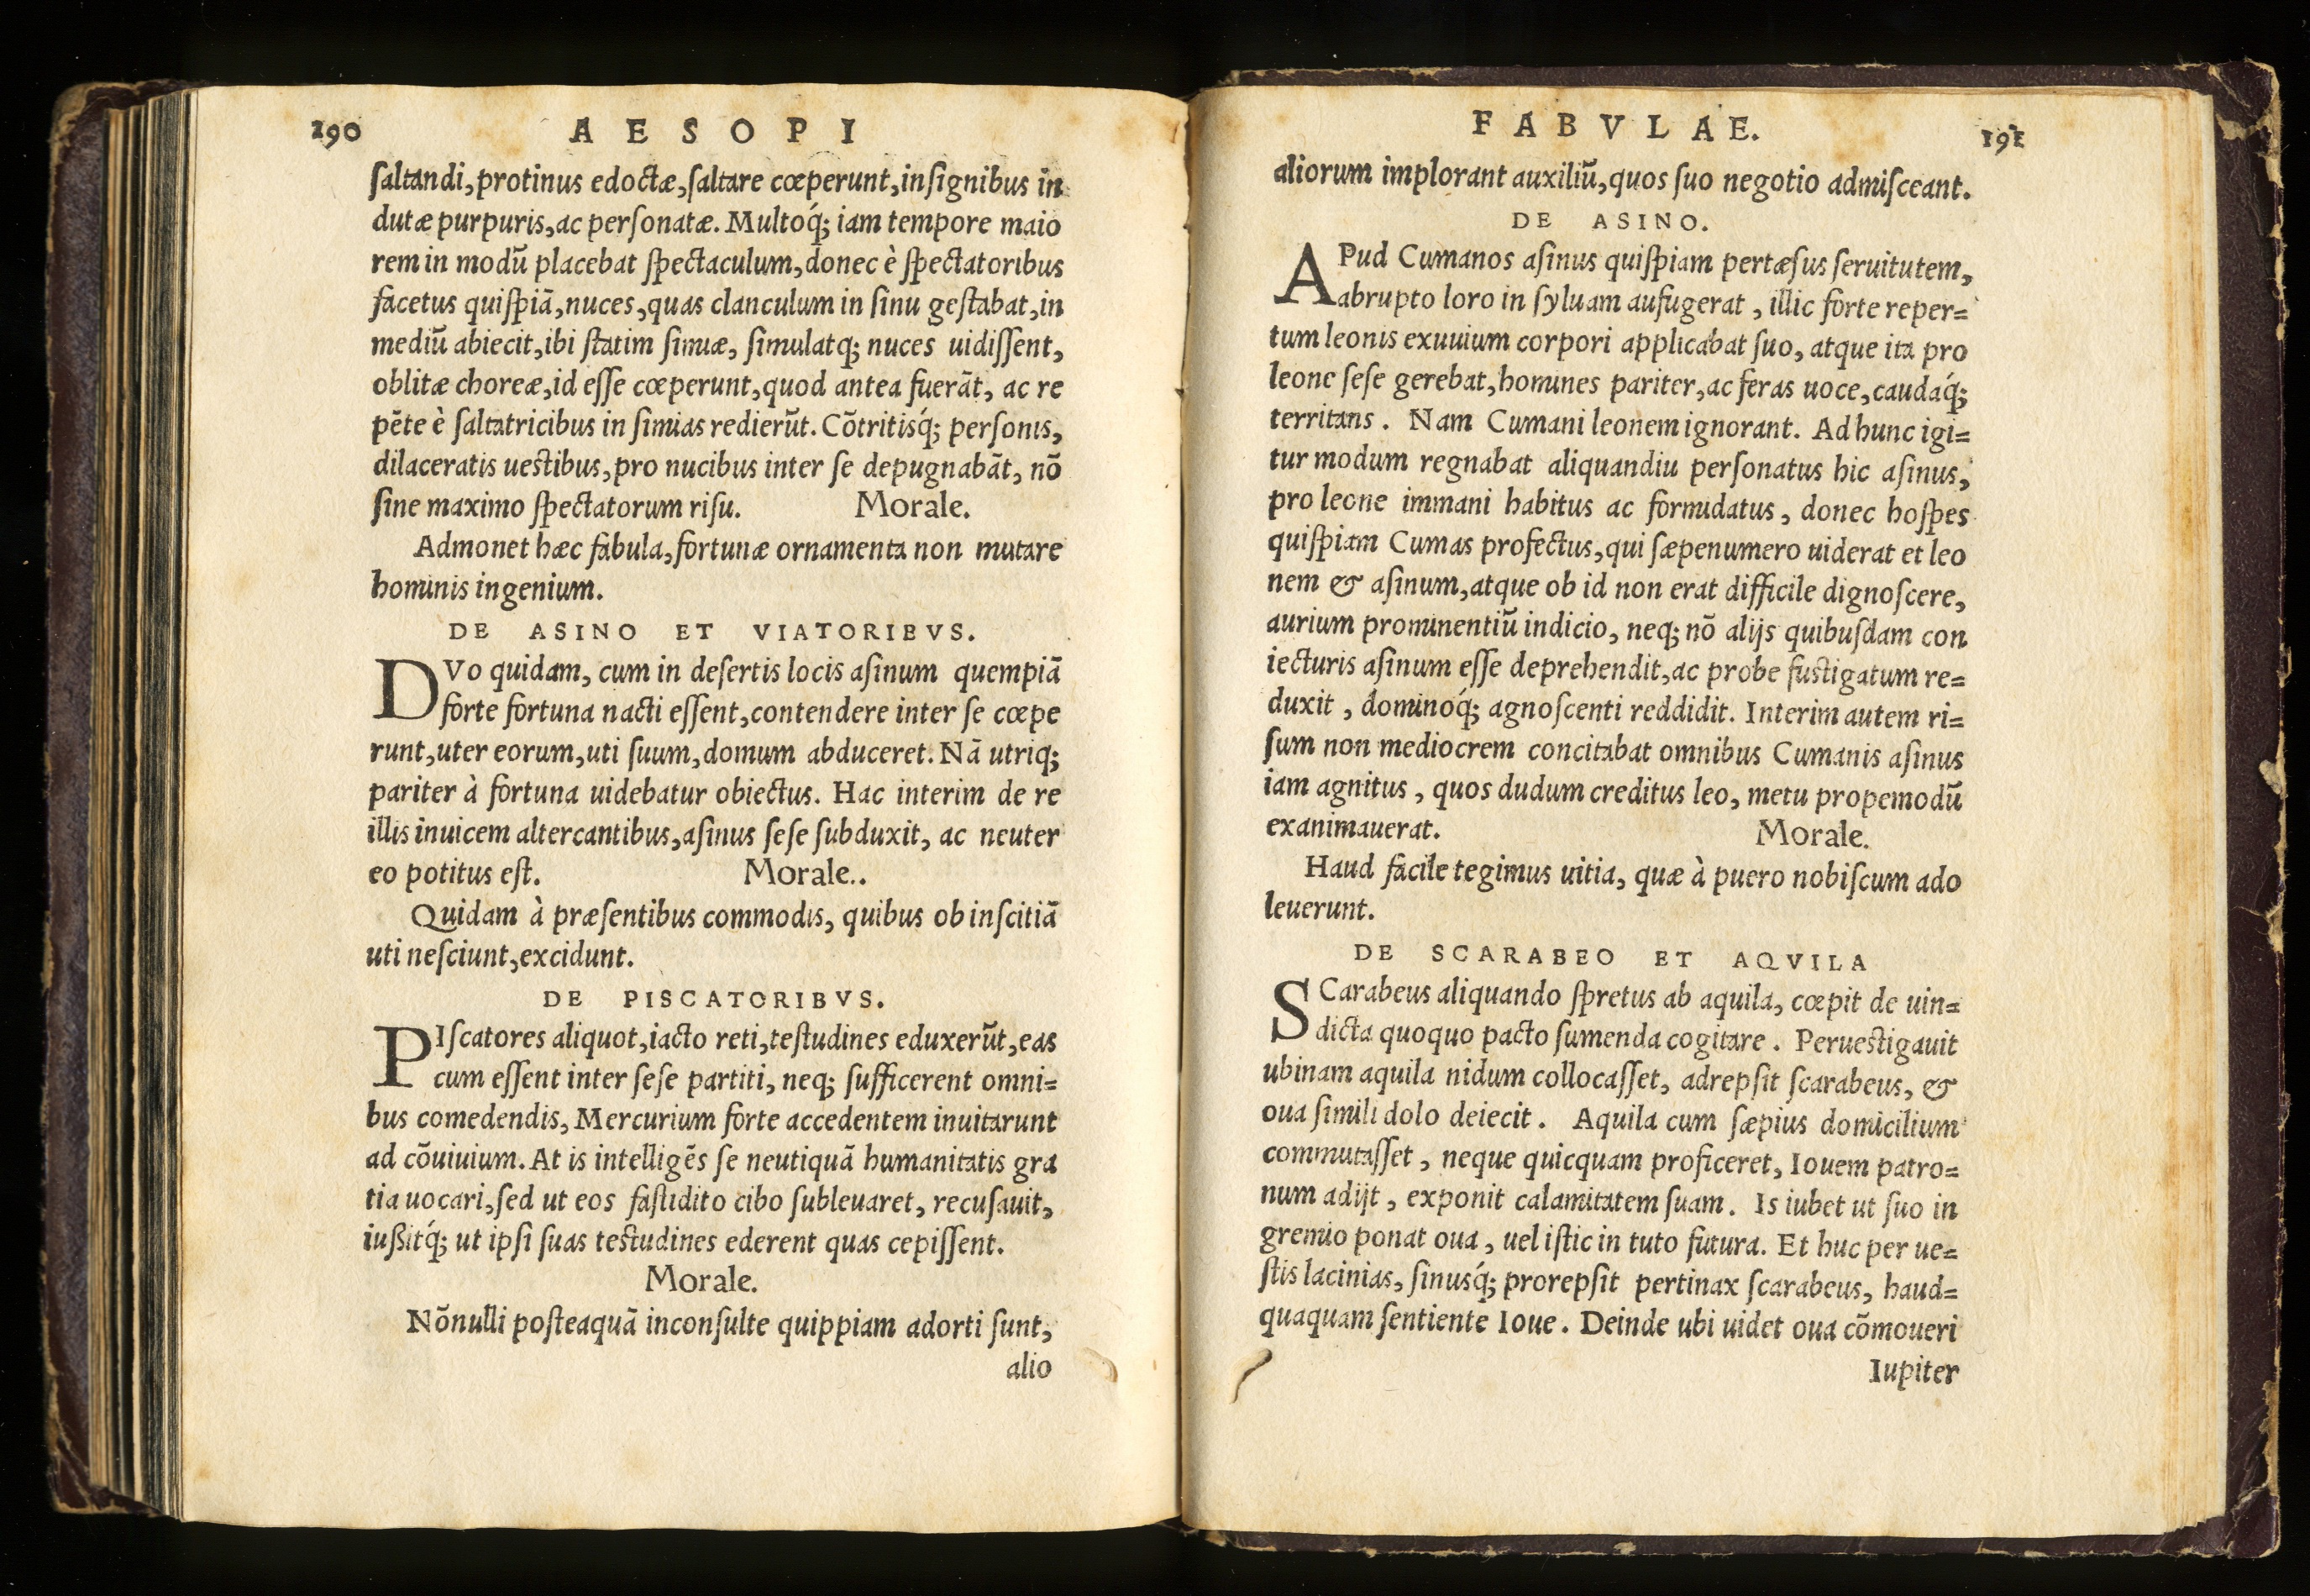 190
A E S O P I
ſaltandi,protinus edoctæ,ſaltare cœperunt,inſignibus in
dutæ purpuris,ac perſonatæ. Multoq́; iam tempore maio
rem in modũ placebat ſpectaculum,donec è ſpectatoribus
facetus quiſpiã,nuces,quas clanculum in ſinu geſtabat,in
mediũ abiecit,ibi ſtatim ſimiæ, ſimulatq; nuces uidiſſent,
oblitæ choreæ,id eſſe cœperunt,quod antea fuerãt, ac re
pẽte è ſaltatricibus in ſimias redierũt. Cõtritisq́; perſonis,
dilaceratis ueſtibus,pro nucibus inter ſe depugnabãt, nõ
ſine maximo ſpectatorum riſu. Morale.
Admonet hæc fabula,fortunæ ornamenta non mutare
hominis ingenium.
DE ASINO ET VIATORIBVS.
DVo quidam, cum in deſertis locis aſinum quempiã
forte fortuna nacti eſſent,contendere inter ſe cœpe
runt,uter eorum,uti ſuum,domum abduceret. Nã utriq;
pariter à fortuna uidebatur obiectus. Hac interim de re
illis inuicem altercantibus,aſinus ſeſe ſubduxit, ac neuter
eo potitus eſt. Morale..
Quidam à præſentibus commodis, quibus ob inſcitiã
uti neſciunt,excidunt.
DE PISCATORIBVS.
PIſcatores aliquot,iacto reti,teſtudines eduxerũt,eas
cum eſſent inter ſeſe partiti, neq; ſufficerent omni=
bus comedendis, Mercurium forte accedentem inuitarunt
ad cõuiuium. At is intelligẽs ſe neutiquã humanitatis gra
tia uocari,ſed ut eos faſtidito cibo ſubleuaret, recuſauit,
iußitq́; ut ipſi ſuas teſtudines ederent quas cepiſſent.
Morale.
Nõnulli poſteaquã inconſulte quippiam adorti ſunt,
alio
F A B V L AE.
191
aliorum implorant auxiliũ,quos ſuo negotio admiſceant.
DE ASINO.
APud Cumanos aſinus quiſpiam pertæſus ſeruitutem,
abrupto loro in ſyluam aufugerat , illic forte reper=
tum leonis exuuium corpori applicabat ſuo, atque ita pro
leone ſeſe gerebat,homines pariter,ac feras uoce,caudaq́;
territans . Nam Cumani leonem ignorant. Ad hunc igi=
tur modum regnabat aliquandiu perſonatus hic aſinus,
pro leone immani habitus ac formidatus , donec hoſpes
quiſpiam Cumas profectus,qui ſæpenumero uiderat et leo
nem & aſinum,atque ob id non erat difficile dignoſcere,
aurium prominentiũ indicio, neq; nõ alijs quibuſdam con
iecturis aſinum eſſe deprehendit,ac probe fuſtigatum re=
duxit , dominoq́; agnoſcenti reddidit. Interim autem ri=
ſum non mediocrem concitabat omnibus Cumanis aſinus
iam agnitus , quos dudum creditus leo, metu propemodũ
exanimauerat. Morale.
Haud facile tegimus uitia, quæ à puero nobiſcum ado
leuerunt.
DE SCARABEO ET AQVILA
SCarabeus aliquando ſpretus ab aquila, cœpit de uin=
dicta quoquo pacto ſumenda cogitare . Perueſtigauit
ubinam aquila nidum collocaſſet, adrepſit ſcarabeus, &
oua ſimili dolo deiecit . Aquila cum ſæpius domicilium
commutaſſet , neque quicquam proficeret, Iouem patro=
num adijt , exponit calamitatem ſuam . Is iubet ut ſuo in
gremio ponat oua , uel iſtic in tuto futura. Et huc per ue=
ſtis lacinias, ſinusq́; prorepſit pertinax ſcarabeus, haud=
quaquam ſentiente Ioue . Deinde ubi uidet oua cõmoueri
Iupiter